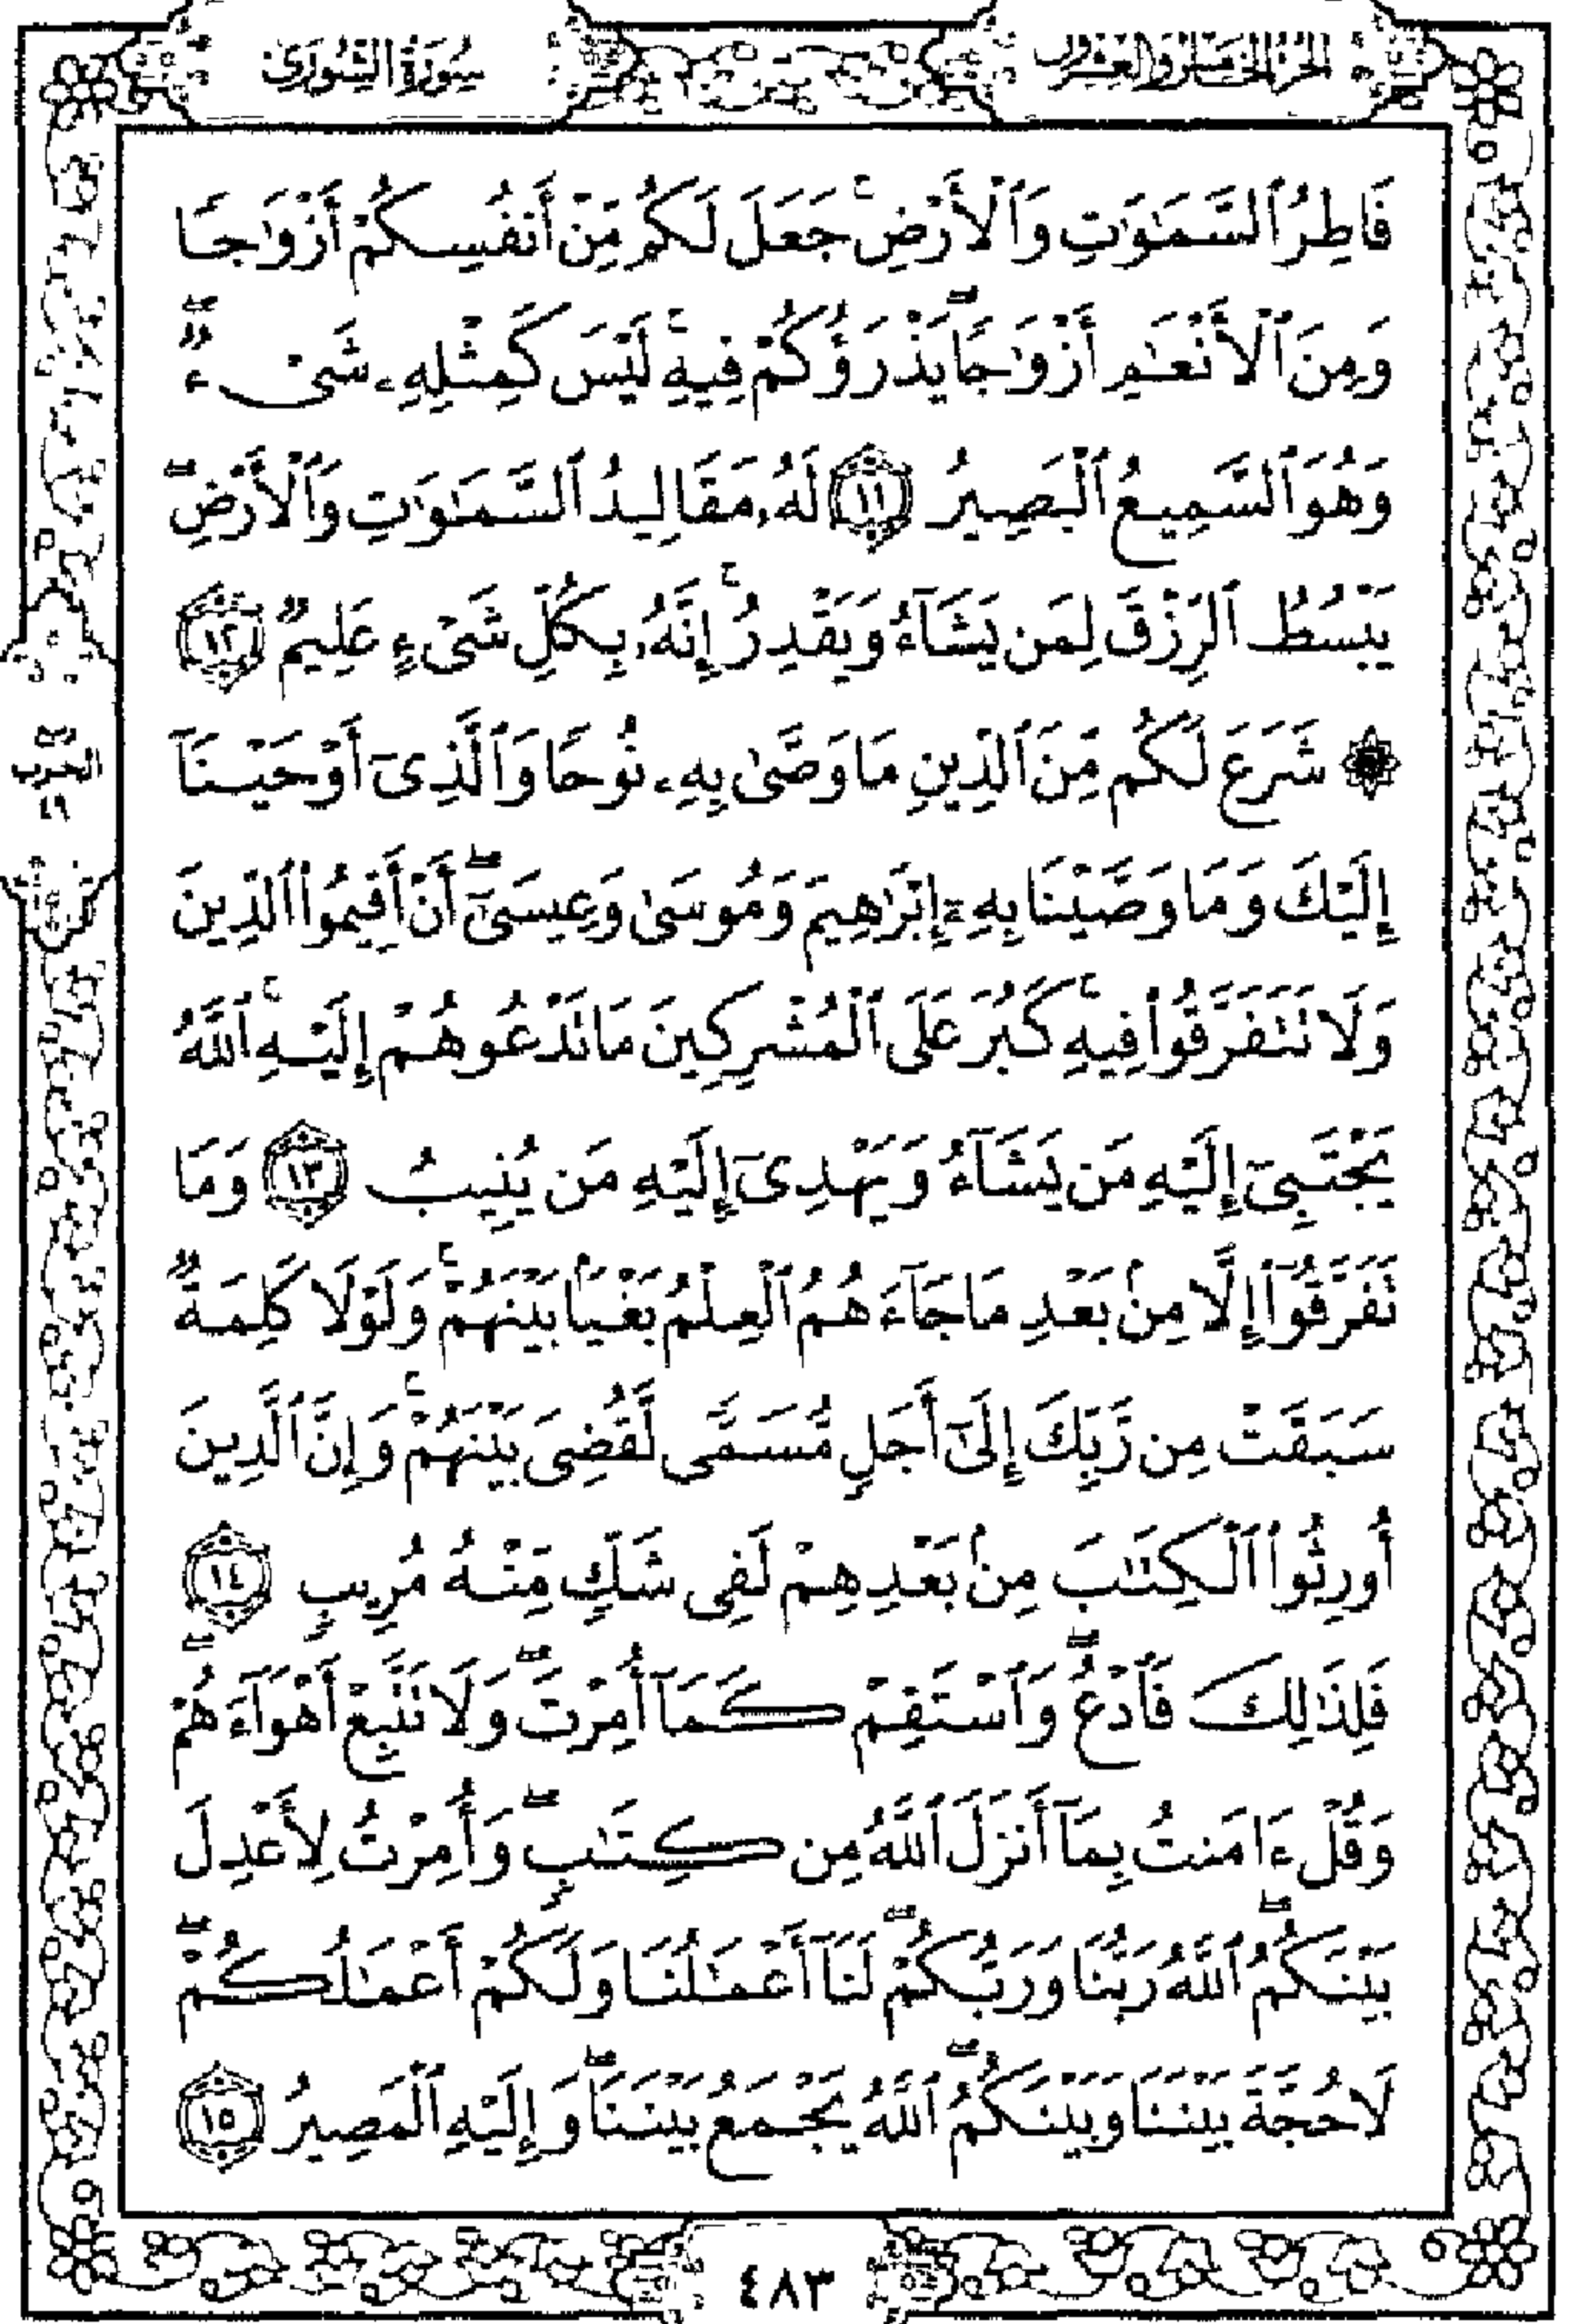 الجزء الخامس والعشرون
سُورَةُ الشُّورَىٰ
فَاطِرُ ٱلسَّمَٰوَٰتِ وَٱلْأَرْضِ ۚ جَعَلَ لَكُم مِّنْ أَنفُسِكُمْ أَزْوَٰجًا
وَمِنَ ٱلْأَنْعَٰمِ أَزْوَٰجًا ۖ يَذْرَؤُكُمْ فِيهِ ۚ لَيْسَ كَمِثْلِهِۦ شَىْءٌ ۖ
وَهُوَ ٱلسَّمِيعُ ٱلْبَصِيرُ ١١ لَهُۥ مَقَالِيدُ ٱلسَّمَٰوَٰتِ وَٱلْأَرْضِ ۖ
يَبْسُطُ ٱلرِّزْقَ لِمَن يَشَآءُ وَيَقْدِرُ ۚ إِنَّهُۥ بِكُلِّ شَىْءٍ عَلِيمٌ ١٢
۞ شَرَعَ لَكُم مِّنَ ٱلدِّينِ مَا وَصَّىٰ بِهِۦ نُوحًا وَٱلَّذِىٓ أَوْحَيْنَآ
إِلَيْكَ وَمَا وَصَّيْنَا بِهِۦٓ إِبْرَٰهِيمَ وَمُوسَىٰ وَعِيسَىٰٓ ۖ أَنْ أَقِيمُوا۟ ٱلدِّينَ
وَلَا تَتَفَرَّقُوا۟ فِيهِ ۚ كَبُرَ عَلَى ٱلْمُشْرِكِينَ مَا تَدْعُوهُمْ إِلَيْهِ ۚ ٱللَّهُ
يَجْتَبِىٓ إِلَيْهِ مَن يَشَآءُ وَيَهْدِىٓ إِلَيْهِ مَن يُنِيبُ ١٣ وَمَا
تَفَرَّقُوٓا۟ إِلَّا مِنۢ بَعْدِ مَا جَآءَهُمُ ٱلْعِلْمُ بَغْيًۢا بَيْنَهُمْ ۚ وَلَوْلَا كَلِمَةٌ
سَبَقَتْ مِن رَّبِّكَ إِلَىٰٓ أَجَلٍ مُّسَمًّى لَّقُضِىَ بَيْنَهُمْ ۚ وَإِنَّ ٱلَّذِينَ
أُورِثُوا۟ ٱلْكِتَٰبَ مِنۢ بَعْدِهِمْ لَفِى شَكٍّ مِّنْهُ مُرِيبٍ ١٤
فَلِذَٰلِكَ فَٱدْعُ ۖ وَٱسْتَقِمْ كَمَآ أُمِرْتَ ۖ وَلَا تَتَّبِعْ أَهْوَآءَهُمْ ۖ
وَقُلْ ءَامَنتُ بِمَآ أَنزَلَ ٱللَّهُ مِن كِتَٰبٍ ۖ وَأُمِرْتُ لِأَعْدِلَ
بَيْنَكُمُ ۖ ٱللَّهُ رَبُّنَا وَرَبُّكُمْ ۖ لَنَآ أَعْمَٰلُنَا وَلَكُمْ أَعْمَٰلُكُمْ ۖ
لَا حُجَّةَ بَيْنَنَا وَبَيْنَكُمُ ۖ ٱللَّهُ يَجْمَعُ بَيْنَنَا ۖ وَإِلَيْهِ ٱلْمَصِيرُ ١٥
الحزب
٤٨٣